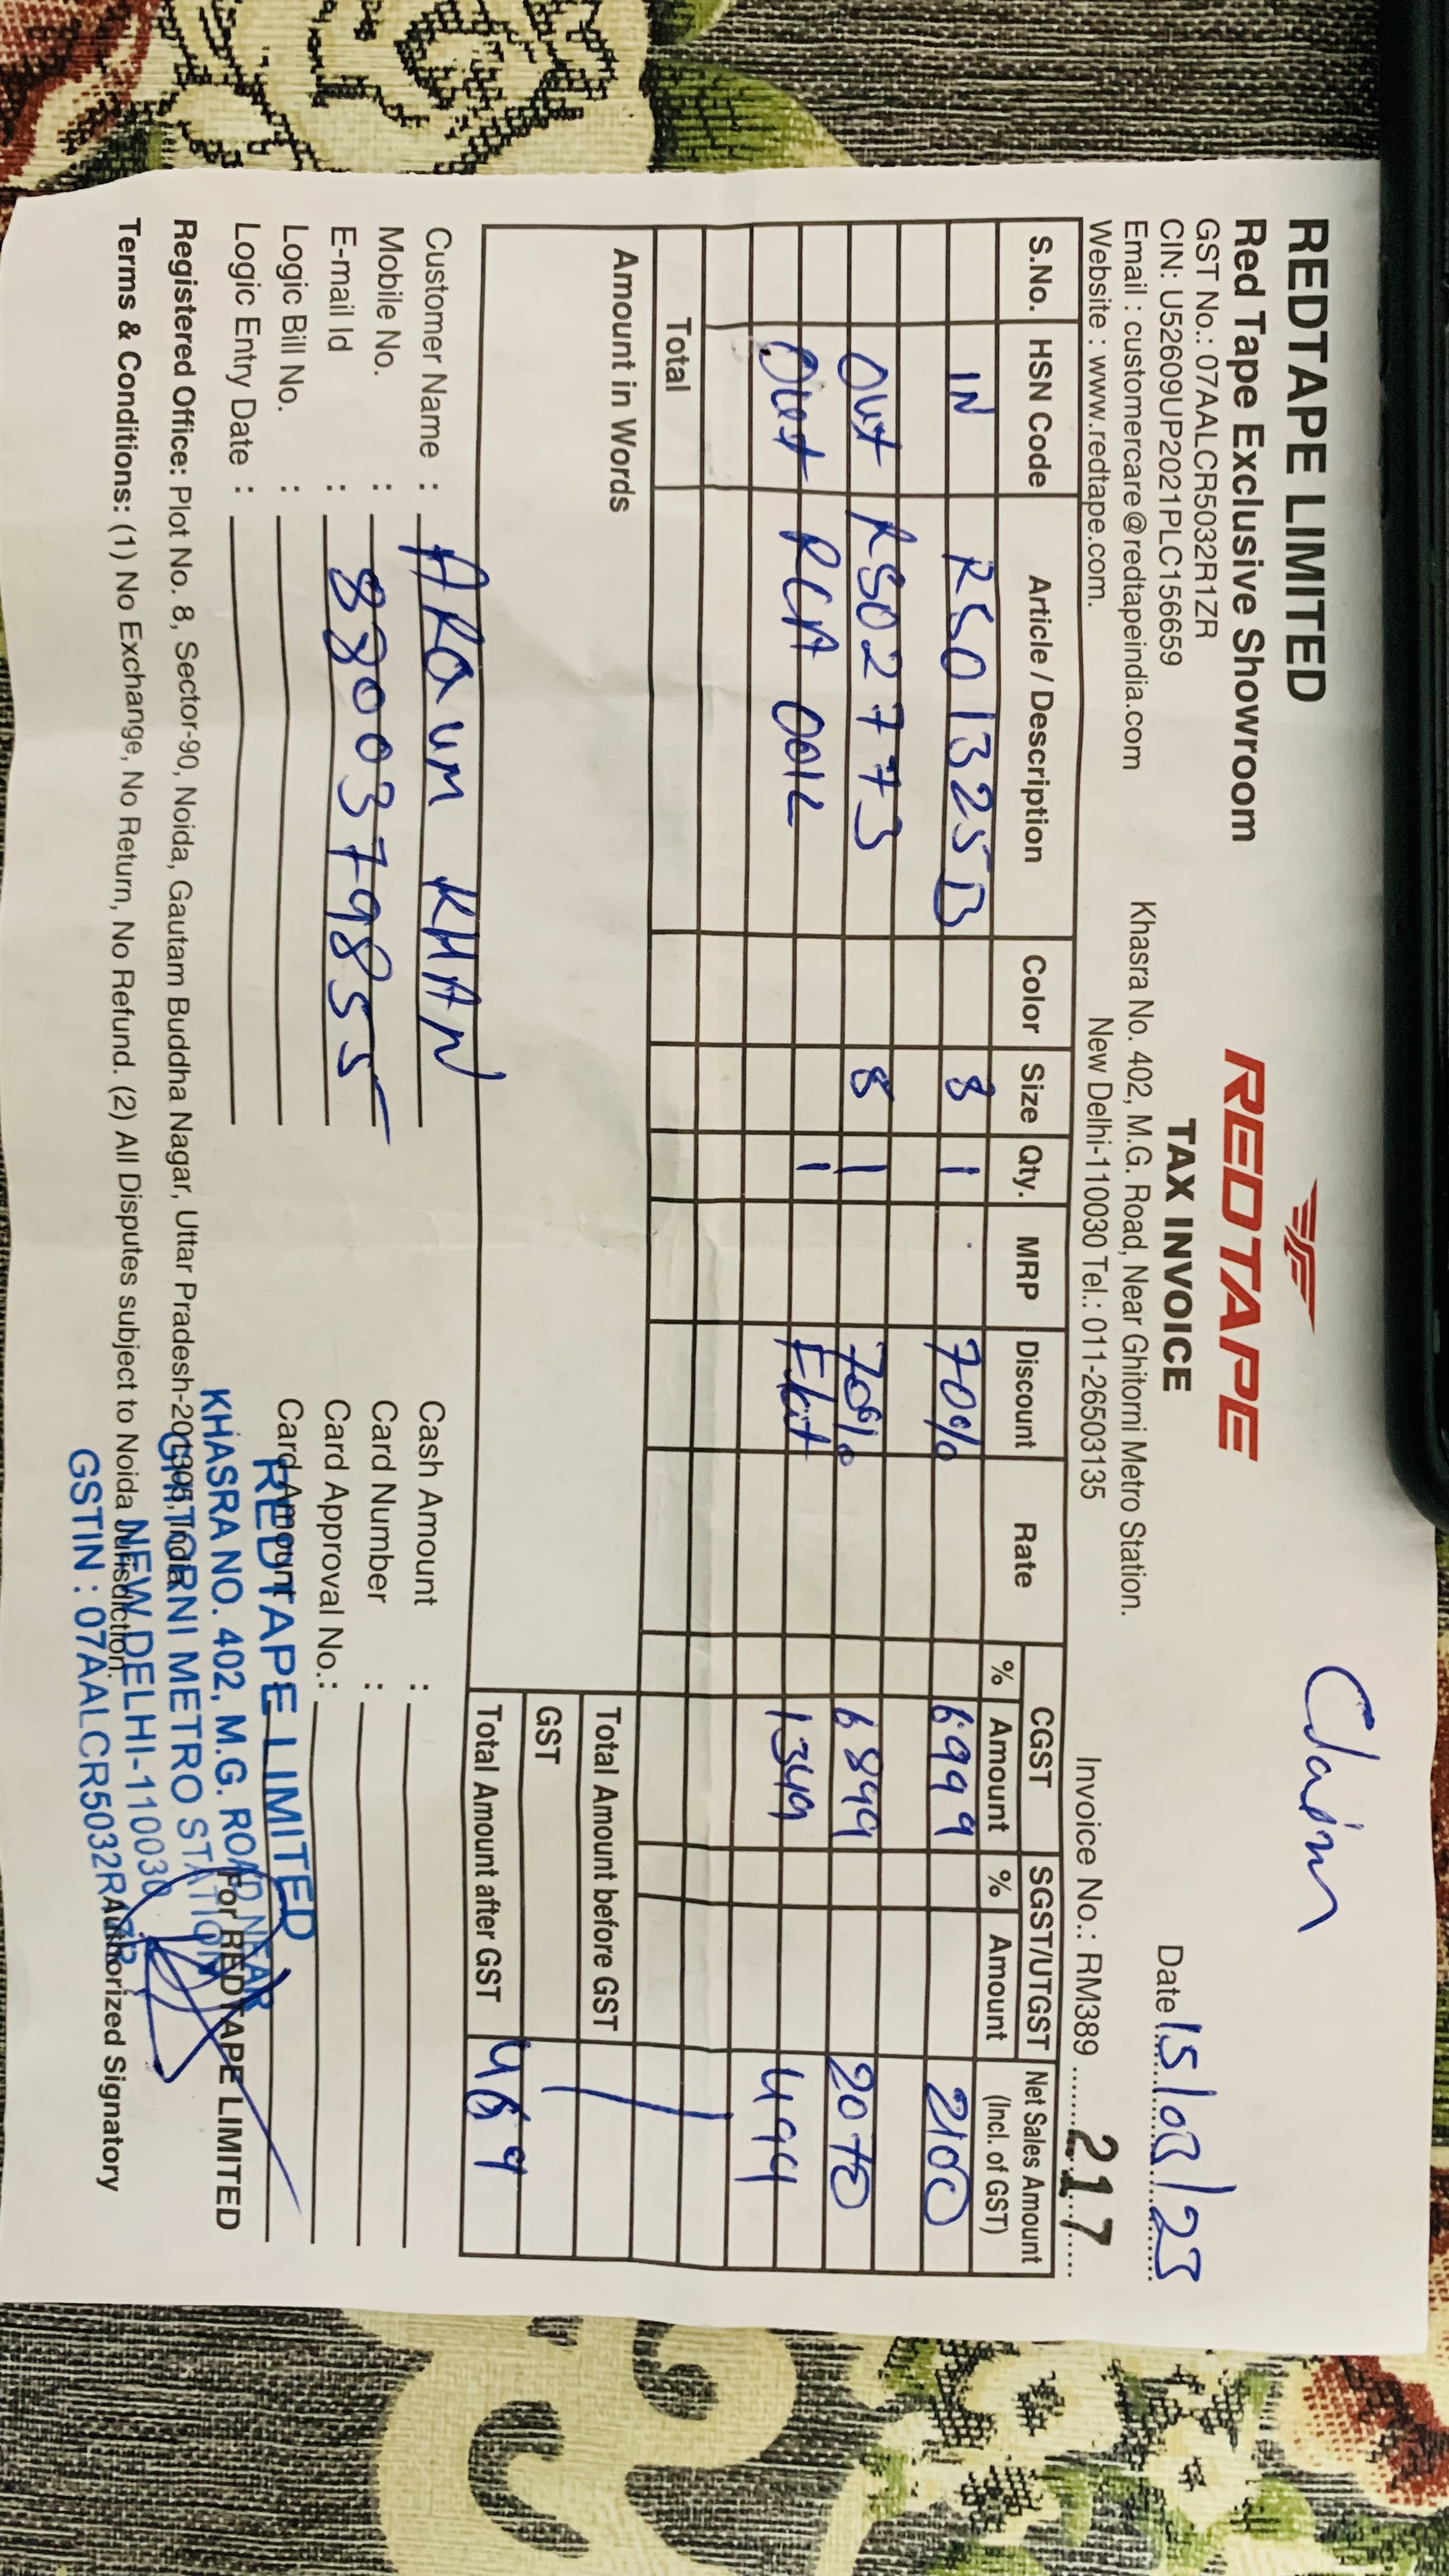 Claim
REDTAPE LIMITED
Red Tape Exclusive Showroom
GST No.: 07AALCR5032R1ZR
CIN: U52609UP2021PLC156659
Email : customercare@redtapeindia.com
Website : www.redtape.com.
REDTAPE
TAX INVOICE
Khasra No. 402, M.G. Road, Near Ghitorni Metro Station.
New Delhi-110030 Tel.: 011-26503135
Date 15/08/23
Invoice No.: RM389 217
S.No. HSN Code Article / Description Color Size Qty. MRP Discount Rate CGST SGST/UTGST Net Sales Amount
% Amount % Amount (Incl. of GST)
IN RSO1325B 8 1 70% 6999 2100
OUT RSO2773 8 1 70% 6899 2070
Out RCA 001L 1 Flat 1349 499
Total
Amount in Words
Total Amount before GST
GST
Total Amount after GST 469
Customer Name : AKaum KHAN
Mobile No. :
E-mail Id : 8800379855
Logic Bill No. :
Logic Entry Date :
Cash Amount :
Card Number :
Card Approval No.:
Card Amount
REDTAPE LIMITED
KHASRA NO. 402, M.G. ROAD NEAR
GHITORNI METRO STATION
NEW DELHI-110030
GSTIN : 07AALCR5032R
For REDTAPE LIMITED
Authorized Signatory
Registered Office: Plot No. 8, Sector-90, Noida, Gautam Buddha Nagar, Uttar Pradesh-201305, India
Terms & Conditions: (1) No Exchange, No Return, No Refund. (2) All Disputes subject to Noida Jurisdiction.